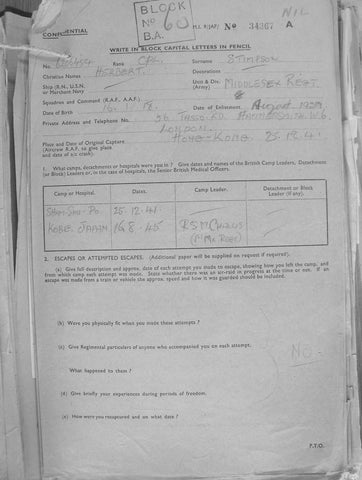 BLOCK
No 60
B.A.
NIL
CONFIDENTIAL
M.I. 9/JAP/ No 34367 A1
WRITE IN BLOCK CAPITAL LETTERS IN PENCIL
No. Rank CPL. Surname STIMPSON
Christian Names HERBERT. Decorations
Ship (R.N., U.S.N. or Merchant Navy Unit & Div. (Army) MIDDLESEX REGT.
Squadron and Command (R.A.F., A.A.F.)
Date of Birth Date of Enlistment August 1939
Private Address and Telephone No. 36 TASSO RD. HAMMERSMITH W.6.
LONDON
Place and Date of Original Capture HONG-KONG. 25.12.41
(Aircrew R.A.F. to give place and date of a/c crash).
1. What camps, detachments or hospitals were you in? Give dates and names of the British Camp Leaders, Detachment (or Block) Leaders or, in the case of hospitals, the Senior British Medical Officers.
Camp or Hospital. Dates. Camp Leader. Detachment or Block Leader (if any).
SHAM-SHUI-PO. 25-12-41.
KOBE JAPAN 16.8.45 RSM
2. ESCAPES OR ATTEMPTED ESCAPES. (Additional paper will be supplied on request if required).
(a) Give full description and approx. date of each attempt you made to escape, showing how you left the camp, and from which camp each attempt was made. State whether there was an air-raid in progress at the time or not. If an escape was made from a train or vehicle the approx. speed and how it was guarded should be included.
(b) Were you physically fit when you made these attempts ?
(c) Give Regimental particulars of anyone who accompanied you on each attempt.
NO.
What happened to them ?
(d) Give briefly your experiences during periods of freedom.
(e) How were you recaptured and on what date ?
P.T.O.